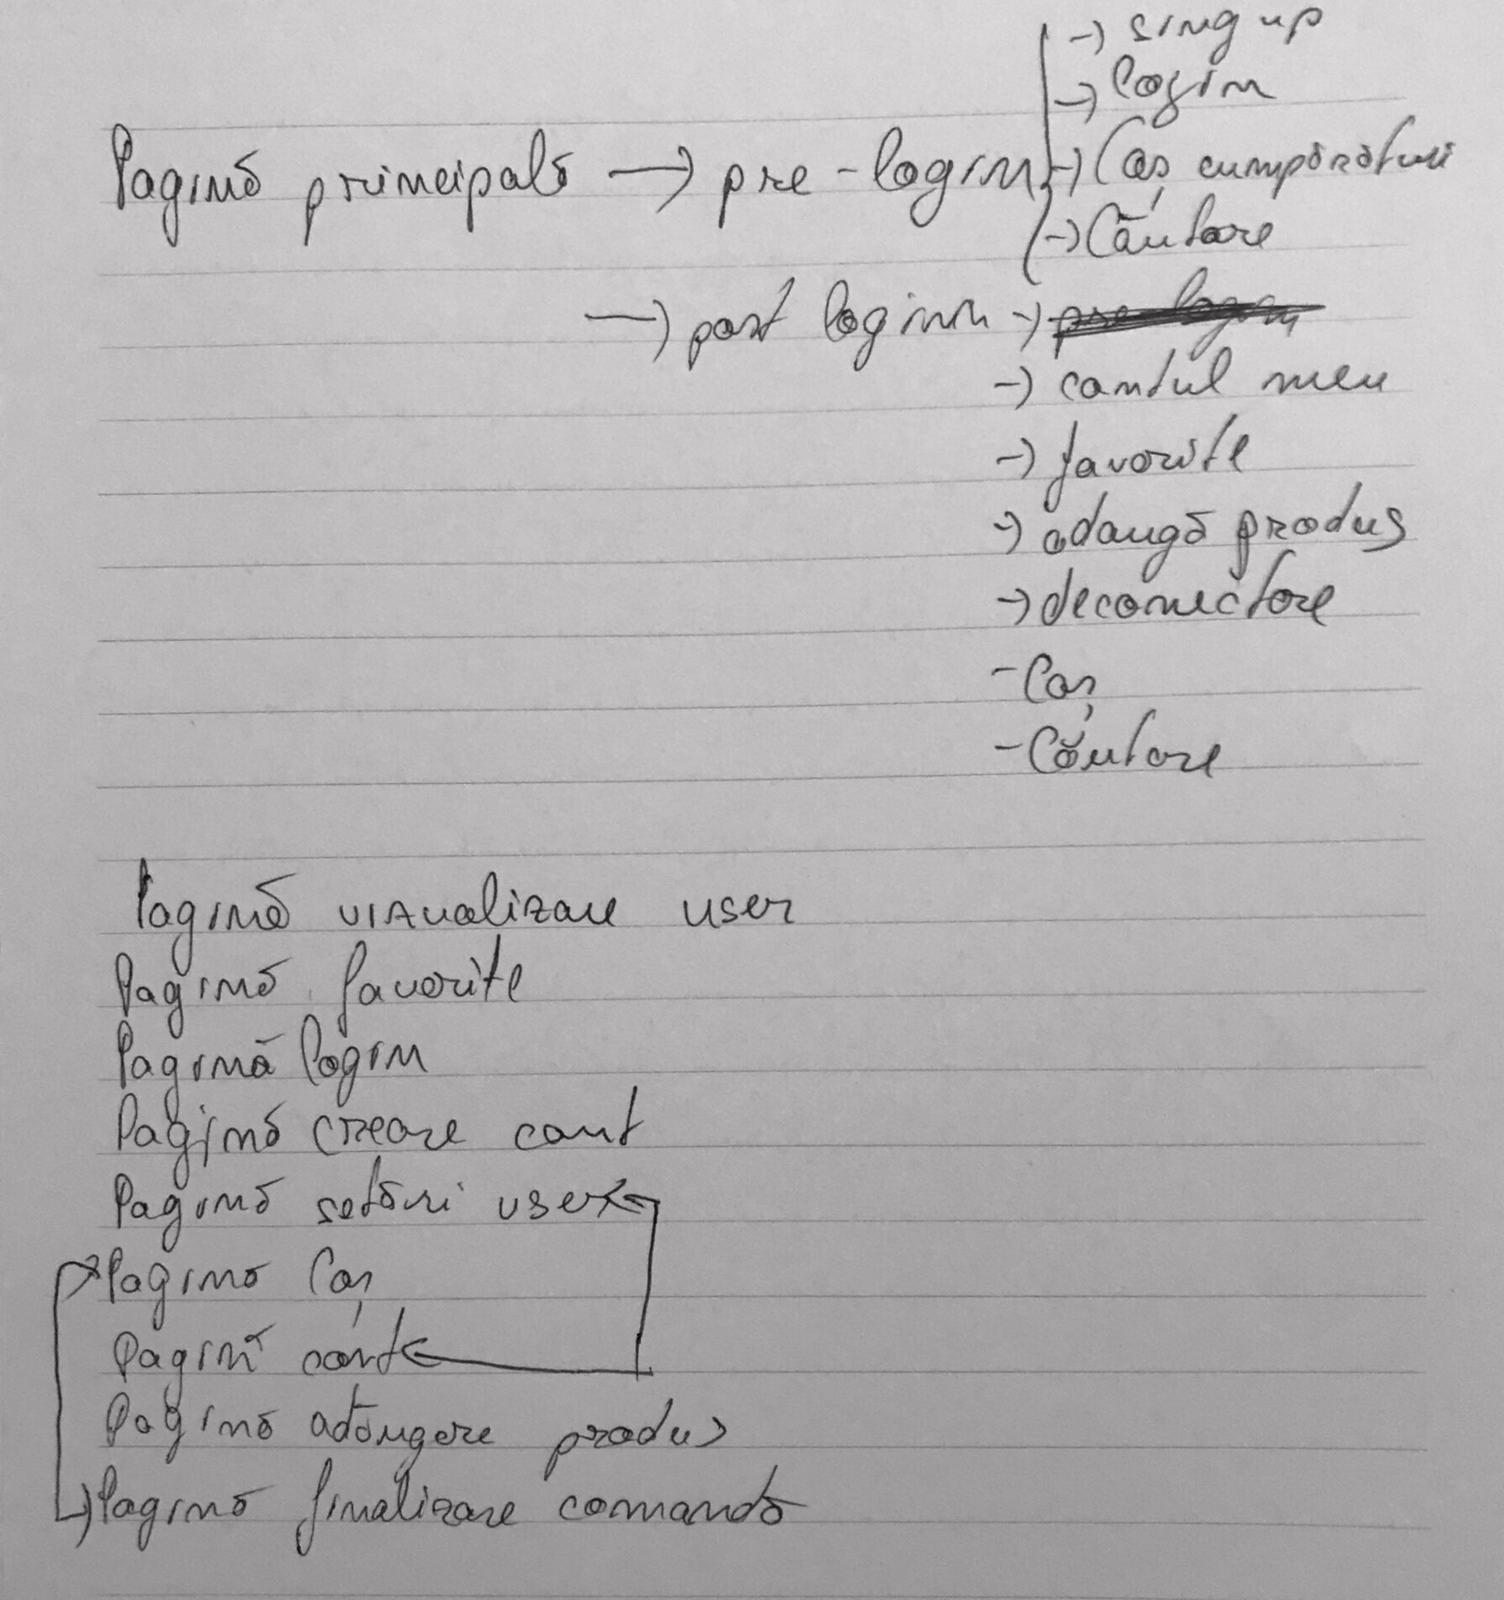 → sing up
→ login
Pagină principală → pre-login → Coș cumpărături
→ Căutare
→ post loginn → pre-login
→ contul meu
→ favorite
→ adaugă produs
→ deconectare
- Coș
- Căutare
Pagină vizualizare user
Pagină favorite
Pagină login
Pagină creare cont
Pagină setări user
Pagină Coș
Pagină cont
Pagină adăugere produs
Pagină finalizare comandă